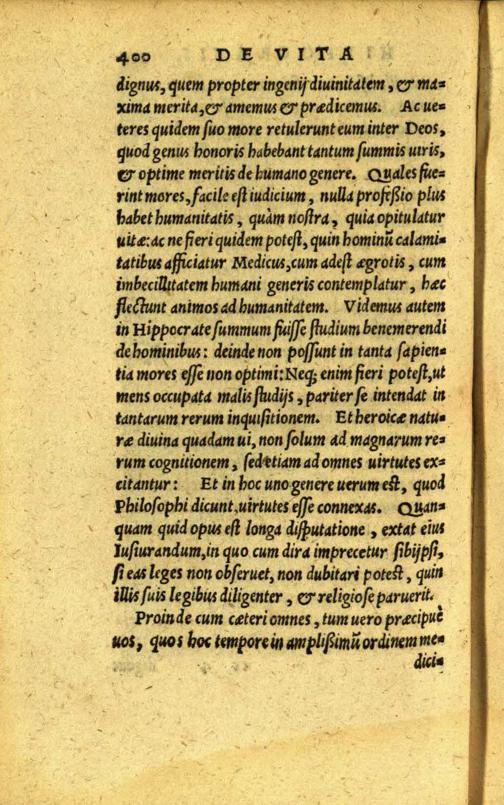 400 DE VITA
dignus, quem propter ingenij diuinitatem, & ma-
xima merita, & amemus & prædicemus. Ac ue-
teres quidem suo more retulerunt eum inter Deos,
quod genus honoris habebant tantum summis uiris,
& optime meritis de humano genere. Quales fue-
rint mores, facile est iudicium, nulla professio plus
habet humanitatis, quàm nostra, quia opitulatur
uitæ: ac ne fieri quidem potest, quin hominũ calami-
tatibus afficiatur Medicus, cum adest ægrotis, cum
imbecillitatem humani generis contemplatur, hæc
flectunt animos ad humanitatem. Videmus autem
in Hippocrate summum fuisse studium benemerendi
de hominibus: deinde non possunt in tanta sapien-
tia mores esse non optimi: Neq; enim fieri potest, ut
mens occupata malis studijs, pariter se intendat in
tantarum rerum inquisitionem. Et heroicæ natu-
ræ diuina quadam ui, non solum ad magnarum re-
rum cognitionem, sed etiam ad omnes uirtutes ex-
citantur: Et in hoc uno genere uerum est, quod
Philosophi dicunt, uirtutes esse connexas. Quan-
quam quid opus est longa disputatione, extat eius
Iusiurandum, in quo cum dira imprecetur sibijpsi,
si eas leges non obseruet, non dubitari potest, quin
illis suis legibus diligenter, & religiose paruerit.
Proinde cum cæteri omnes, tum uero præcipuè
uos, quos hoc tempore in amplissimũ ordinem me-
dici-